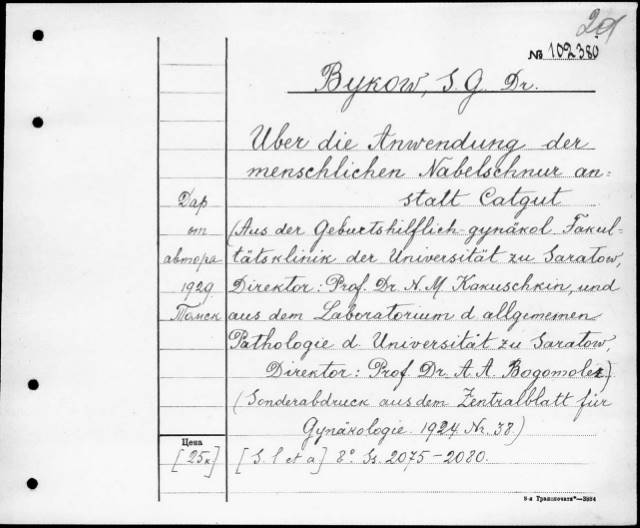 29
№ 102380
Bykow, S. G. Dr.
Über die Anwendung der
menschlichen Nabelschnur an=
statt Catgut
(Aus der Geburtshilflich-gynäkol. Fakul-
tätsklinik der Universität zu Saratow,
Direktor: Prof. Dr. N. M Kakuschkin, und
aus dem Laboratorium d allgemeinen
Pathologie d. Universität zu Saratow,
Direktor: Prof. Dr. A. A. Bogomolez)
(Sonderabdruck aus dem Zentralblatt für
Gynäkologie. 1924 Nr. 38.)
[S. l et a] 8° Ss. 2075-2080.
Дар
от
автора
1929
Томск
Цена
[25к]
8-я Транспечать—3884